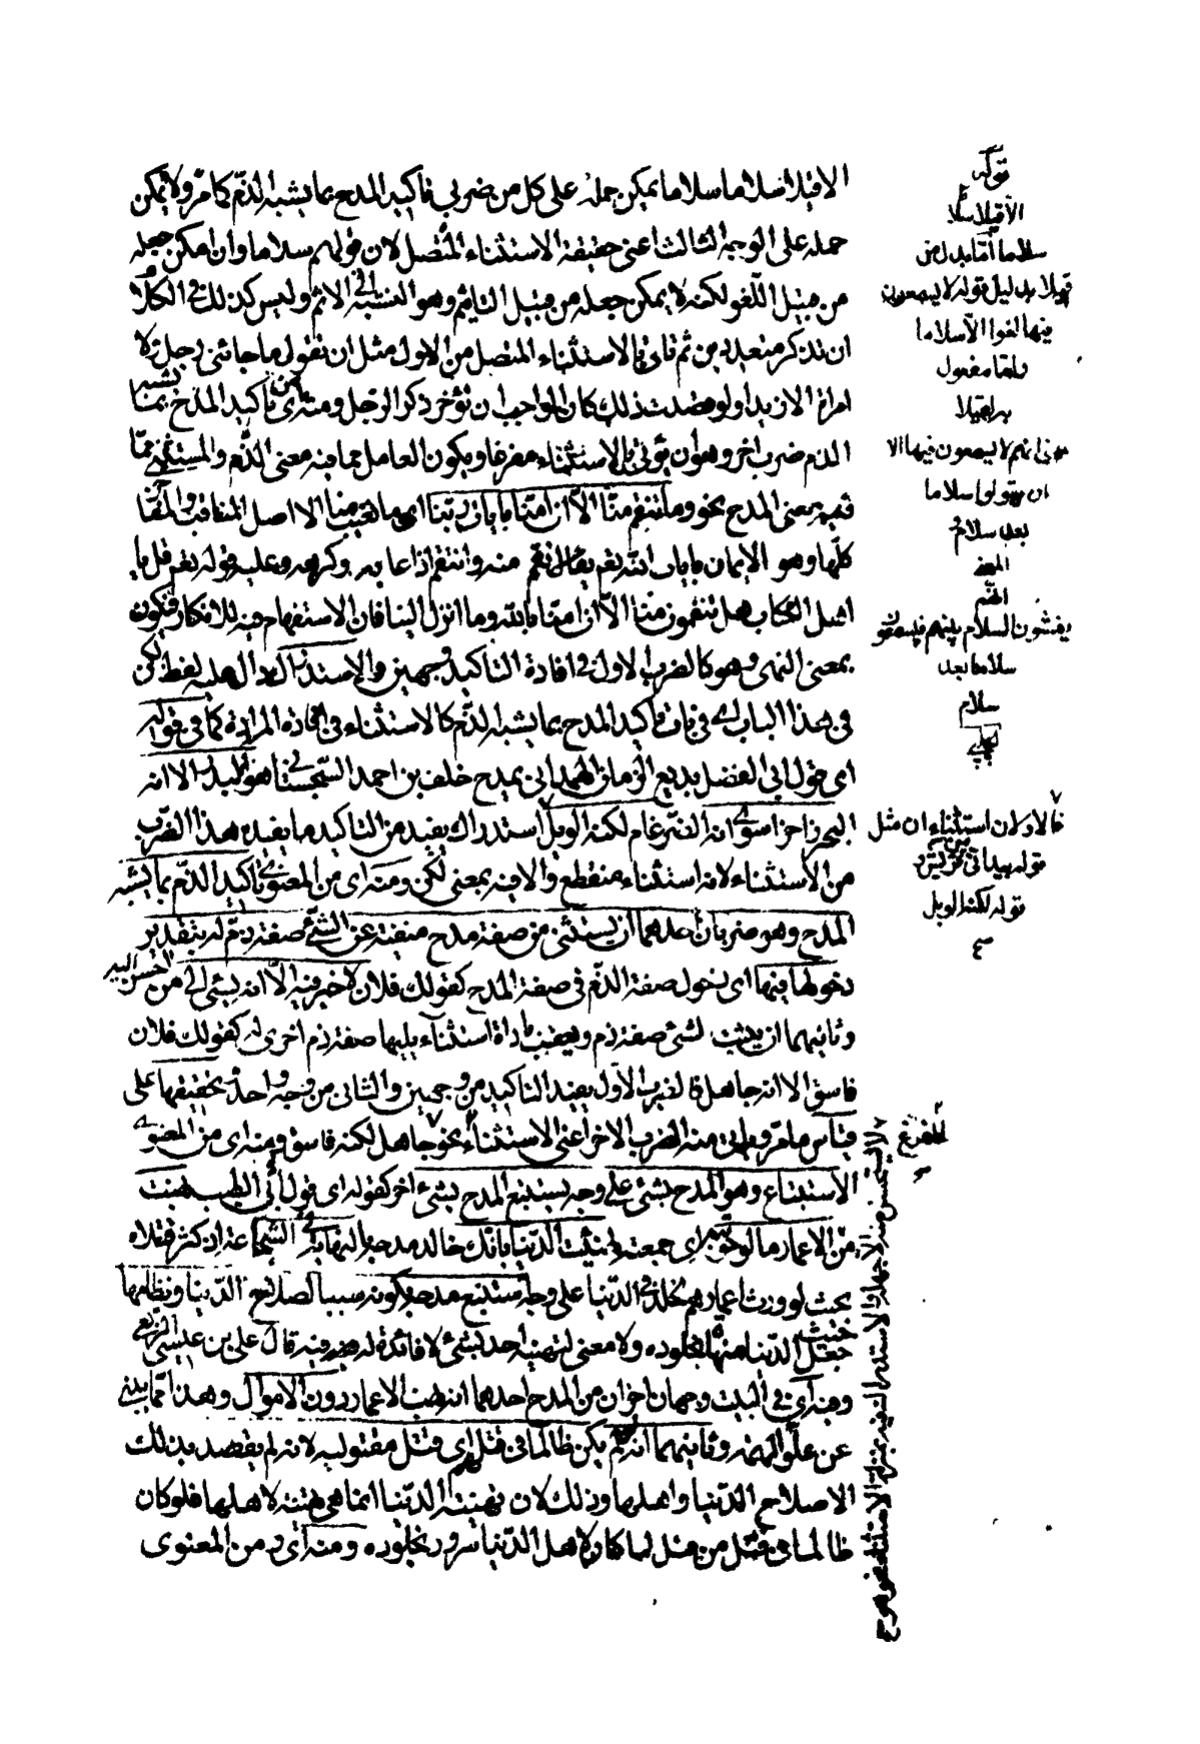 الا قيلا سلاما سلاما يمكن حمله على كل من ضربي تاكيد المدح بما يشبه الذم كما مر ولا يمكن
حمله على الوجه الثالث اعني حقيقة الاستثناء المتصل لان قولهم سلاما وان امكن جعله
من قبيل اللغو لكنه لا يمكن جعله من قبيل التاثيم وهو النسبة الى الاثم وليس لك في الكلام
ان تذكر متعددين ثم تاتي بالاستثناء المتصل من الاول مثل ان تقول ما جاءني رجل ولا
امراة الا زيدا ولو قصدت ذلك كان الواجب ان تؤخر ذكر الرجل ومنه اى من تاكيد المدح بما يشبه
الذم ضرب اخر وهو ان يؤتى بالاستثناء مفرغا ويكون العامل مما فيه معنى الذم والمستثنى مما
فيه معنى المدح نحو وما تنقم منا الا ان امنا بايات ربنا اى ما تعيب منا الا اصل المناقب والمفاخر
كلها وهو الايمان بايات الله تعم يقال نقم منه وانتقم اذا عابه وكرهه وعليه قوله تعم قل يا
اهل الكتاب هل تنقمون منا الا ان امنا بالله وما انزل الينا فان الاستفهام فيه للانكار فيكون
بمعنى النهى وهو كالضرب الاول في افادة التاكيد من وجهين والاستدراك الدال عليه لفظ لكن
في هذا الباب اى في باب تاكيد المدح بما يشبه الذم كالاستثناء في افادة المراد كما في قوله
اى قول ابى الفضل بديع الزمان الهمدانى يمدح خلف بن احمد السجستاني هو البدر الا انه
البحر زاخرا سوى انه الضرغام لكنه الوبل استدراك يفيد من التاكيد ما يفيده هذا الضرب
من الاستثناء لانه استثناء منقطع والا فيه بمعنى لكن ومنه اى من المعنوى تاكيد الذم بما يشبه
المدح وهو ضربان احدهما ان يستثنى من صفة مدح منفية عن الشئ صفة ذم له بتقدير
دخولها فيها اى دخول صفة الذم في صفة المدح كقولك فلان لا خير فيه الا انه يسئ الى من احسن اليه
وثانيهما ان يثبت لشئ صفة ذم ويعقب باداة استثناء يليها صفة ذم اخرى له كقولك فلان
فاسق الا انه جاهل فالضرب الاول يفيد التاكيد من وجهين والثانى من وجه واحد وتحقيقهما على
قياس ما مر وياتى منه الضرب الاخر اعنى الاستثناء نحو جاهل لكنه فاسق ومنه اى من المعنوى
الاستتباع وهو المدح بشئ على وجه يستتبع المدح بشئ اخر كقوله اى قول ابى الطيب نهبت
من الاعمار ما لو حويته اى جمعته لهنئت الدنيا بانك خالد مدحه بالنهاية في الشجاعة اذ كثر قتلاه
بحيث لو ورث اعمارهم لخلد في الدنيا على وجه استتبع مدحه بكونه سببا لصلاح الدنيا ونظامها حيث
جعل الدنيا مهنأة بخلوده ولا معنى لتهنية احد بشئ لا فائدة له فيه قال على بن عيسى الربعى
وفيه اى في البيت وجهان اخران من المدح احدهما انه نهب الاعمار دون الاموال وهذا مما ينبئ
عن علو الهمة وثانيهما انه لم يكن ظالما في قتلهم اى قتل مقتوليه لانه لم يقصد بذلك
الا صلاح الدنيا واهلها وذلك لان تهنية الدنيا انما هى تهنئة لاهلها فلو كان
ظالما في قتل من قتل لما كان لاهل الدنيا سرور بخلوده ومنه اى ومن المعنوى
قوله
الا قيلا سلاما
سلاما اما بدل من
قيلا بدليل قوله لا يسمعون
فيها لغوا الا سلاما
واما مفعول
به لقيلا
معنى انهم لا يسمعون فيها الا
ان يقولوا سلاما
بعد سلام
المعنى
انهم
يفشون السلام بينهم فيسلمون
سلاما بعد
سلام
فالاولان استثناءان مثل
قوله بيد انى من قريش
قوله لكنه الوبل
المفرغ